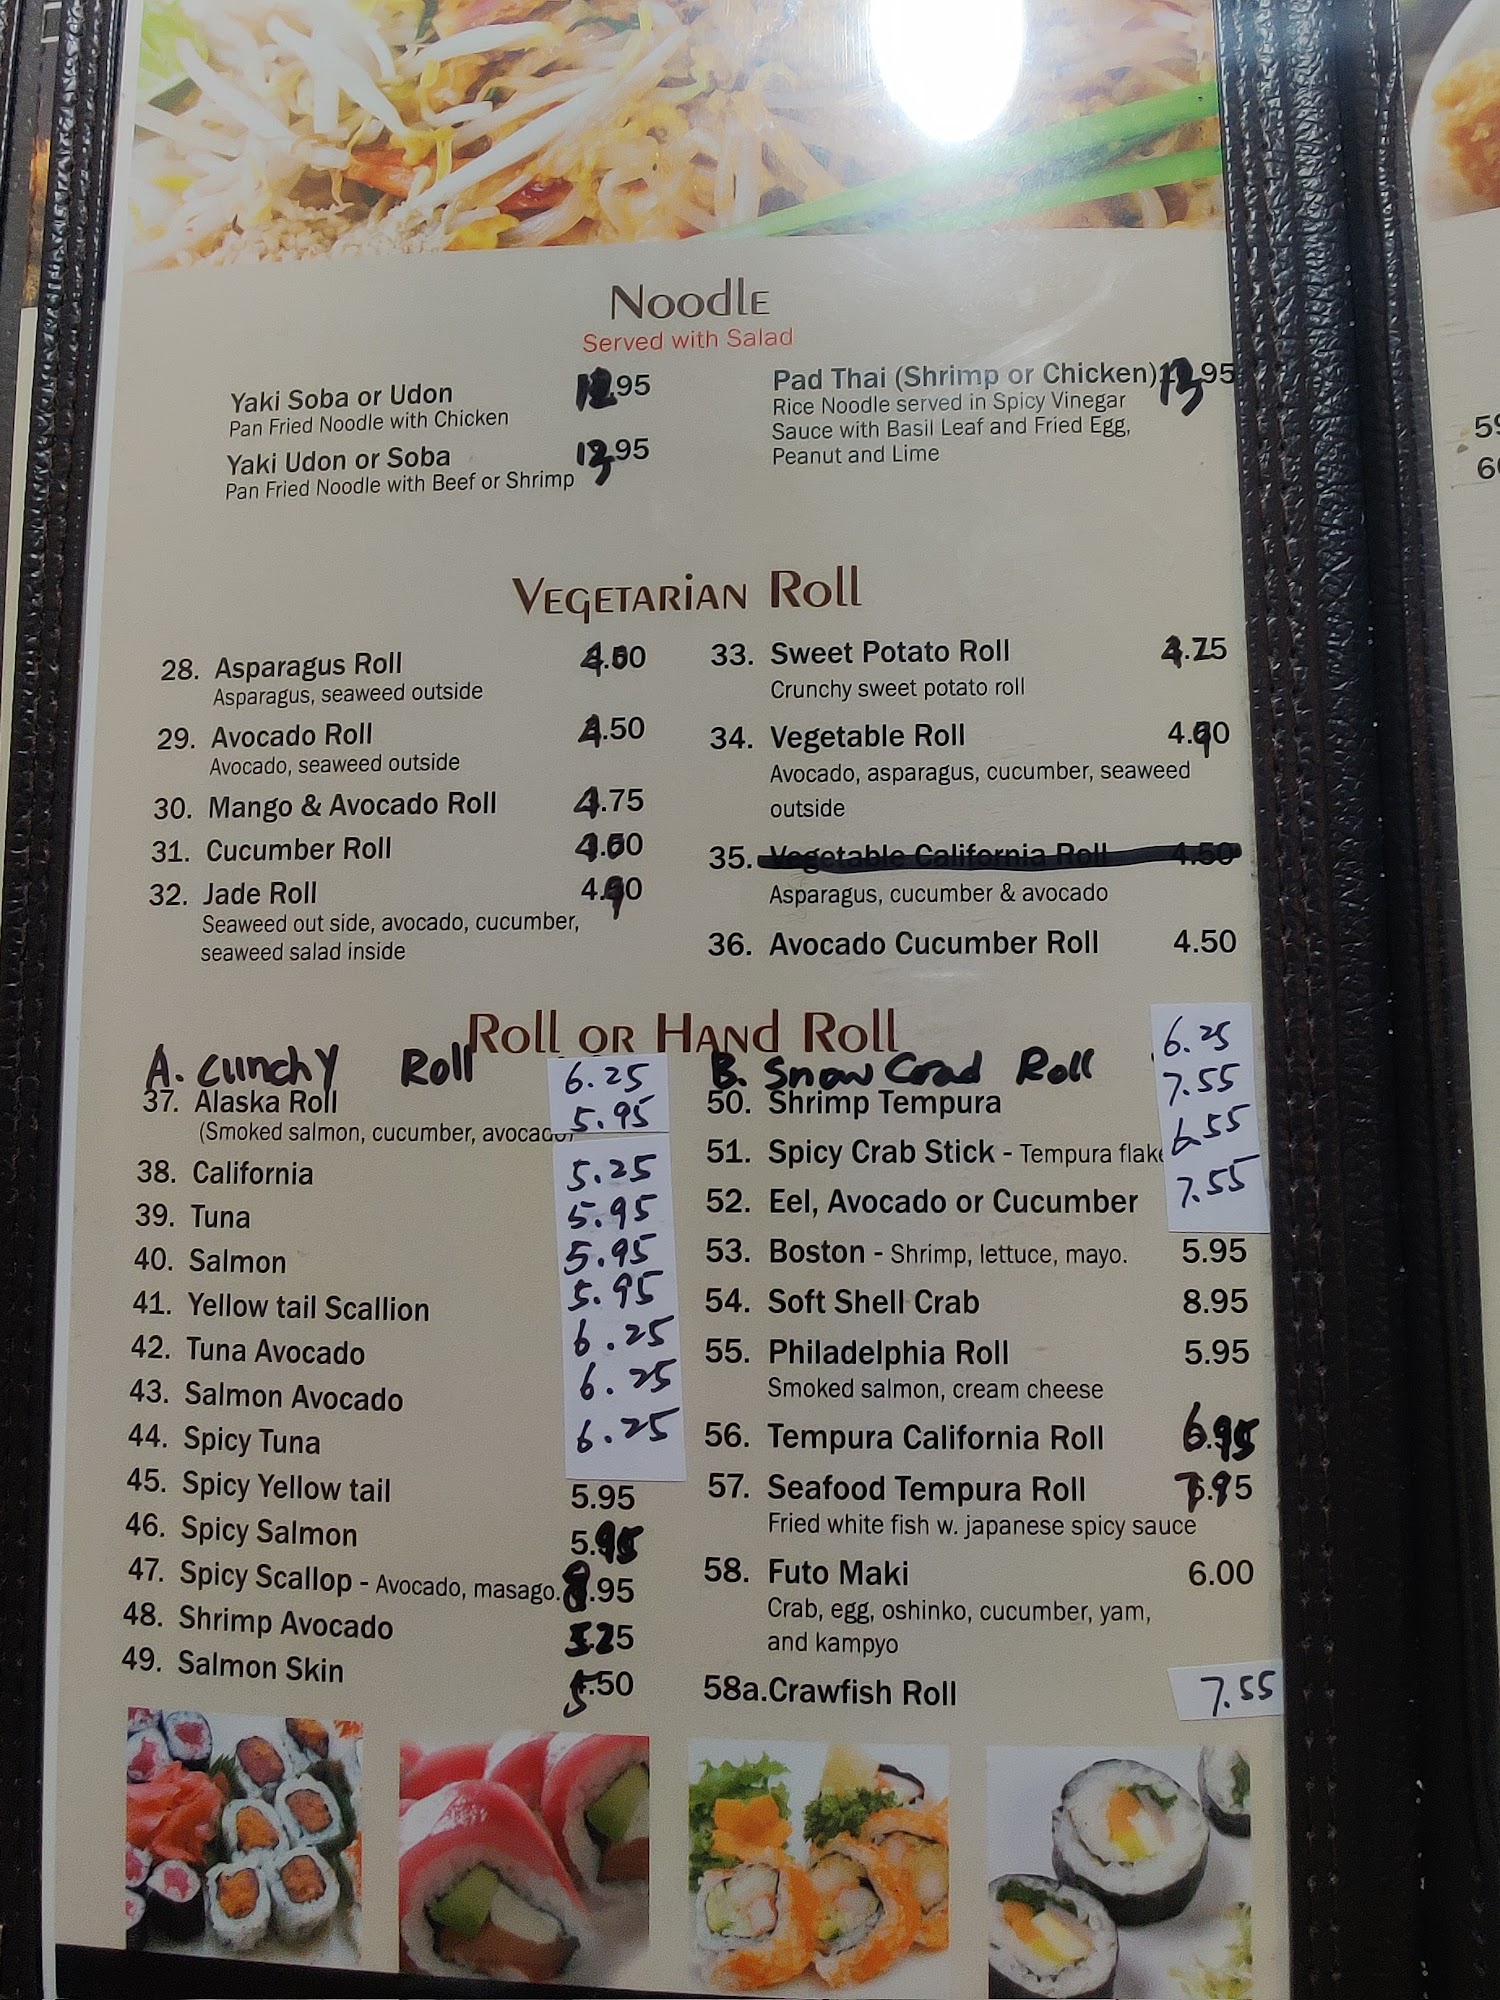 Noodle
Served with Salad
Yaki Soba or Udon 12.95
Pan Fried Noodle with Chicken
Yaki Udon or Soba 13.95
Pan Fried Noodle with Beef or Shrimp
Pad Thai (Shrimp or Chicken) 13.95
Rice Noodle served in Spicy Vinegar
Sauce with Basil Leaf and Fried Egg,
Peanut and Lime
Vegetarian Roll
28. Asparagus Roll
Asparagus, seaweed outside
29. Avocado Roll
Avocado, seaweed outside
30. Mango & Avocado Roll 4.75
31. Cucumber Roll
32. Jade Roll 4.90
Seaweed out side, avocado, cucumber,
seaweed salad inside
33. Sweet Potato Roll
Crunchy sweet potato roll
34. Vegetable Roll 4.90
Avocado, asparagus, cucumber, seaweed
outside
35. Vegetable California Roll 4.50
Asparagus, cucumber & avocado
36. Avocado Cucumber Roll 4.50
Roll or Hand Roll
A. Cunchy Roll 6.25
37. Alaska Roll 5.95
(Smoked salmon, cucumber, avocado)
38. California 5.25
39. Tuna 5.95
40. Salmon 5.95
41. Yellow tail Scallion 5.95
42. Tuna Avocado 6.25
43. Salmon Avocado 6.25
44. Spicy Tuna 6.25
45. Spicy Yellow tail 5.95
46. Spicy Salmon 5.95
47. Spicy Scallop - Avocado, masago. 8.95
48. Shrimp Avocado 5.25
49. Salmon Skin 5.50
B. Snow Crad Roll 6.25
50. Shrimp Tempura 7.55
51. Spicy Crab Stick - Tempura flake 6.55
52. Eel, Avocado or Cucumber 7.55
53. Boston - Shrimp, lettuce, mayo. 5.95
54. Soft Shell Crab 8.95
55. Philadelphia Roll 5.95
Smoked salmon, cream cheese
56. Tempura California Roll 6.95
57. Seafood Tempura Roll 7.95
Fried white fish w. japanese spicy sauce
58. Futo Maki 6.00
Crab, egg, oshinko, cucumber, yam,
and kampyo
58a. Crawfish Roll 7.55